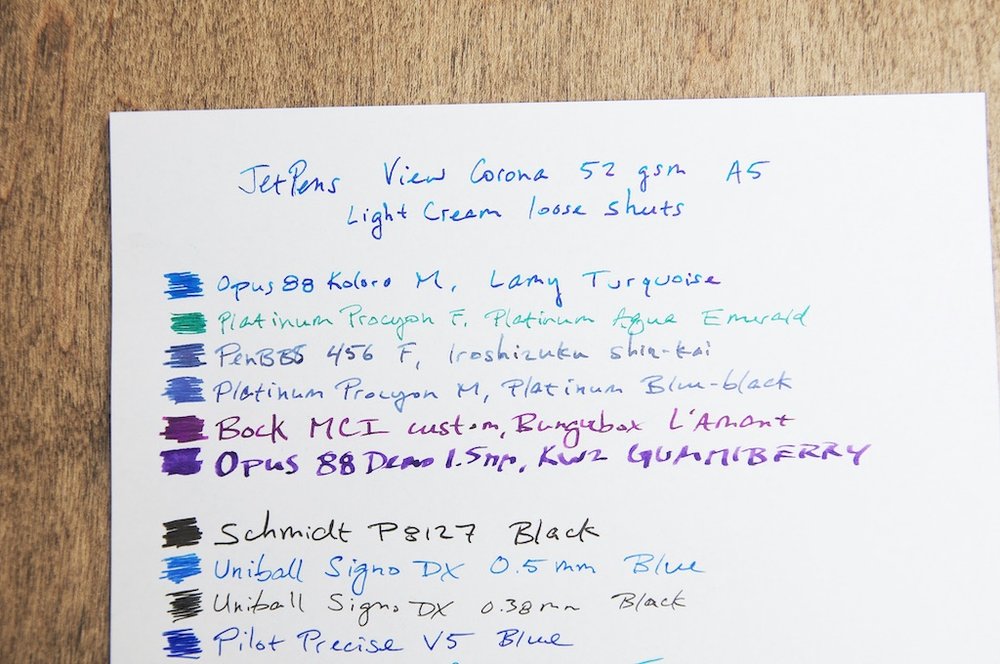 JetPens View Corona 52 gsm A5
Light Cream loose shuts
Opus 88 Koloro M, Lamy Turquoise
Platinum Procyon F, Platinum Aqua Emerald
PenBBS 456 F, Iroshizuku Shin-kai
Platinum Procyon M, Platinum Blue-black
Bock MCI custom, Bungubox L'Amant
Opus 88 Demo 1.5mm, KWZ GUMMIBERRY
Schmidt P8127 Black
Uniball Signo DX 0.5 mm Blue
Uniball Signo DX 0.38mm Black
Pilot Precise V5 Blue